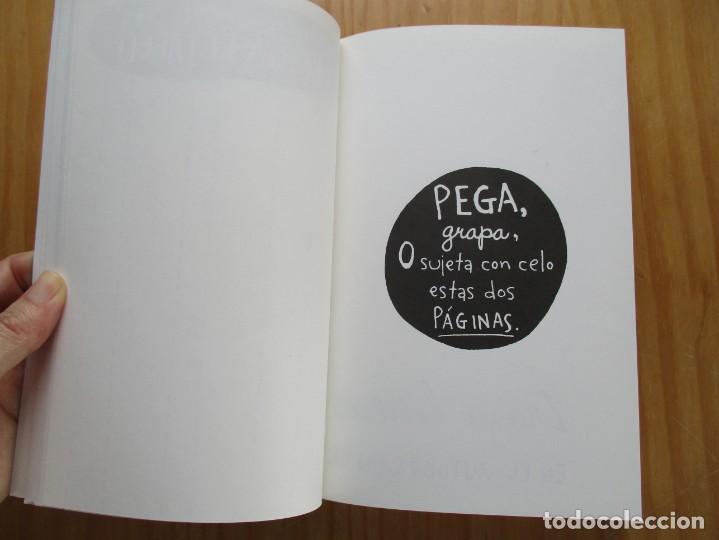 PEGA,
grapa,
O sujeta con celo
estas dos
PÁGINAS.
todocoleccion